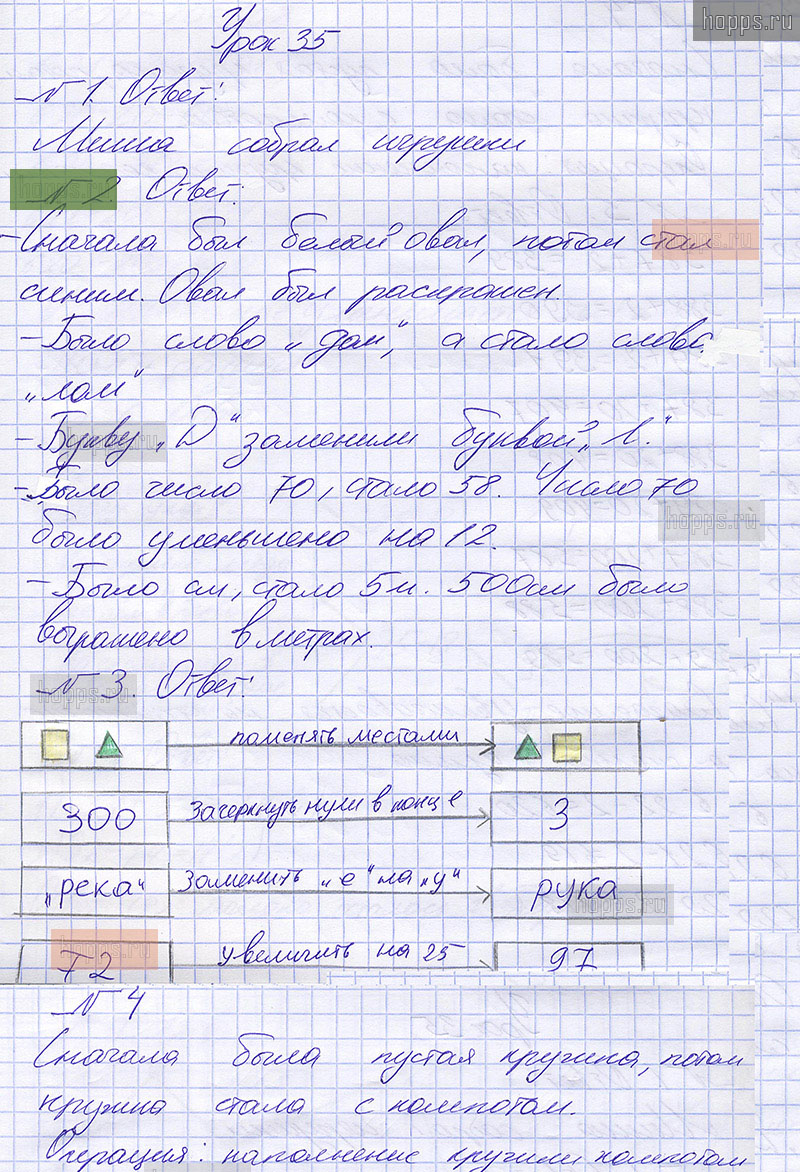 hopps.ru
Урок 35
№ 1. Ответ:
Миша собрал игрушки
№ 2. Ответ:
- Сначала был белый овал, потом стал
синим. Овал был раскрашен.
- Было слово „дом", а стало слово
„лом"
- Букву „D" заменили буквой „Л."
- Было число 70, стало 58. Число 70
было уменьшено на 12.
- Было см, стало 5м. 500см было
выражено в метрах.
№ 3. Ответ:
поменять местами
300 Зачеркнуть нули в конце 3
„река" Заменить „е" на „у" рука
72 увеличить на 25 97
№ 4
Сначала была пустая кружка, потом
кружка стала с компотом.
Операция: наполнение кружки компотом